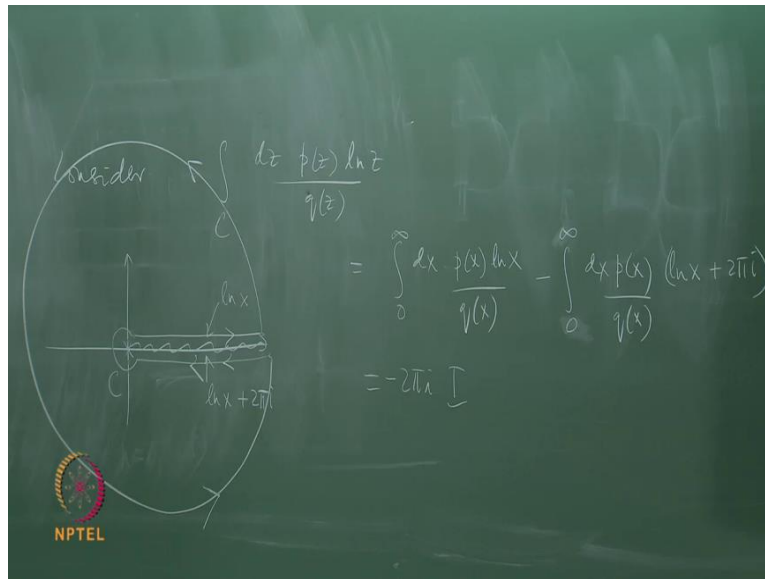 Consider ∫_C dz p(z) ln z / q(z)
= ∫_0^∞ dx p(x) ln x / q(x) - ∫_0^∞ dx p(x) / q(x) (ln x + 2πi)
ln x
C
ln x + 2πi
= -2πi I
NPTEL